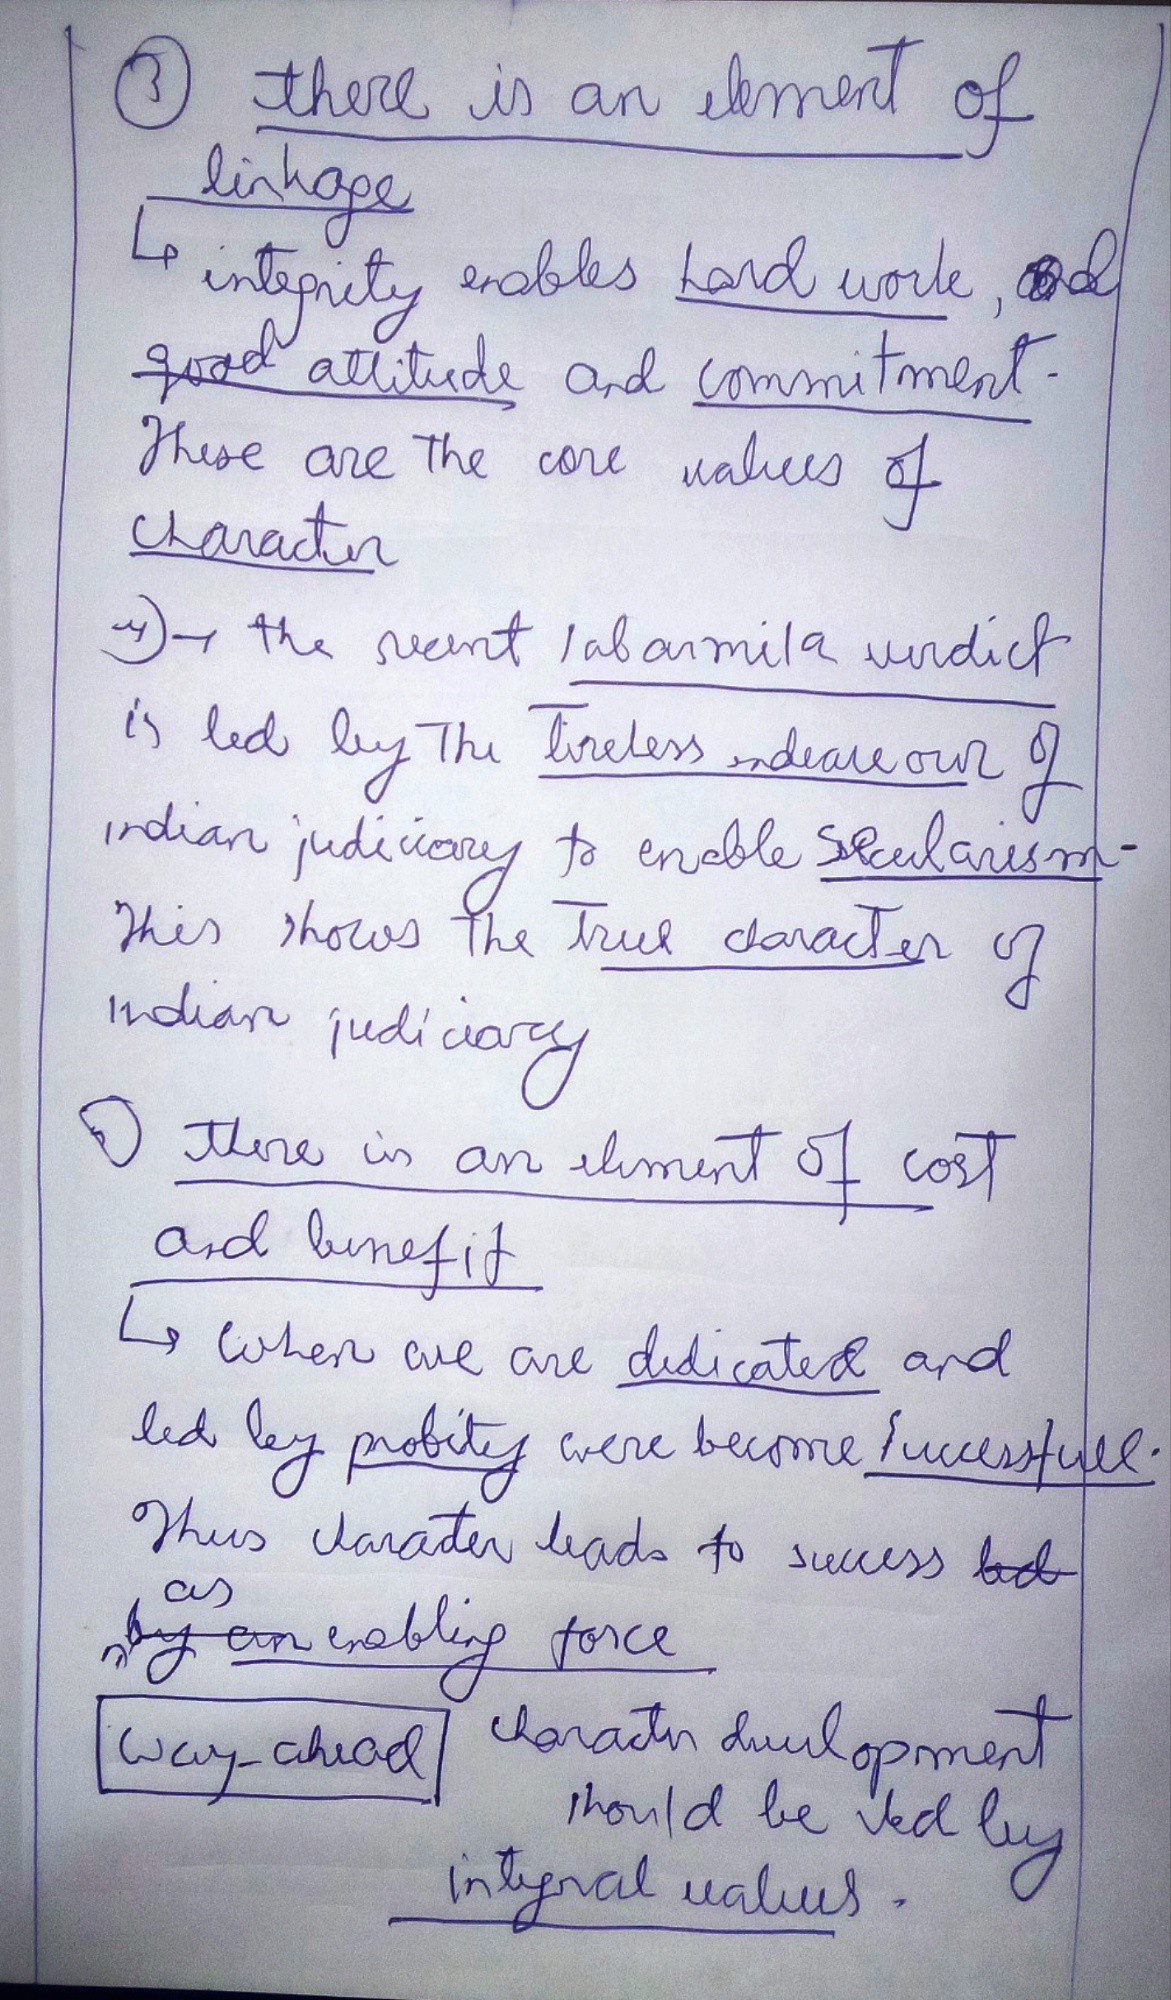 3 there is an element of
linkage
↳ integrity enables hard work, and
good attitude and commitment.
These are the core values of
character
→ the recent sabarmila verdict
is led by the tireless endeaveour of
indian judiciary to enable secularism.
This shows the true character of
indian judiciary
there is an element of cost
and benefit
↳ When we are dedicated and
led by probity were become successfull.
Thus character leads to success led
as
by an enabling force
way-ahead character development
should be led by
integral values.